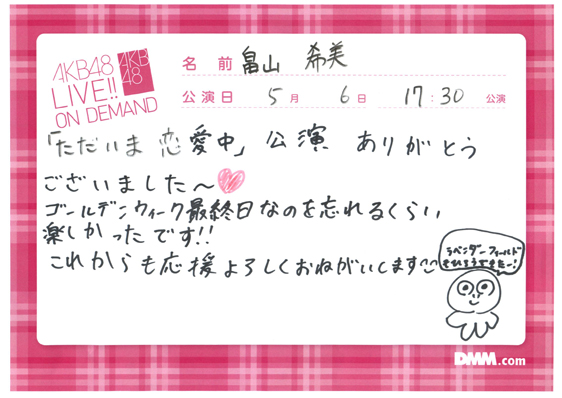 AKB48
LIVE!!
ON DEMAND
AKB
48
名前 畠山 希美
公演日 5月 6日 17:30 公演
「ただいま 恋愛中」公演 ありがとう
ございました～
ゴールデンウィーク最終日なのを忘れるくらい
楽しかったです!!
これからも応援よろしくおねがいします
ラベンダーフィールド
DMM.com